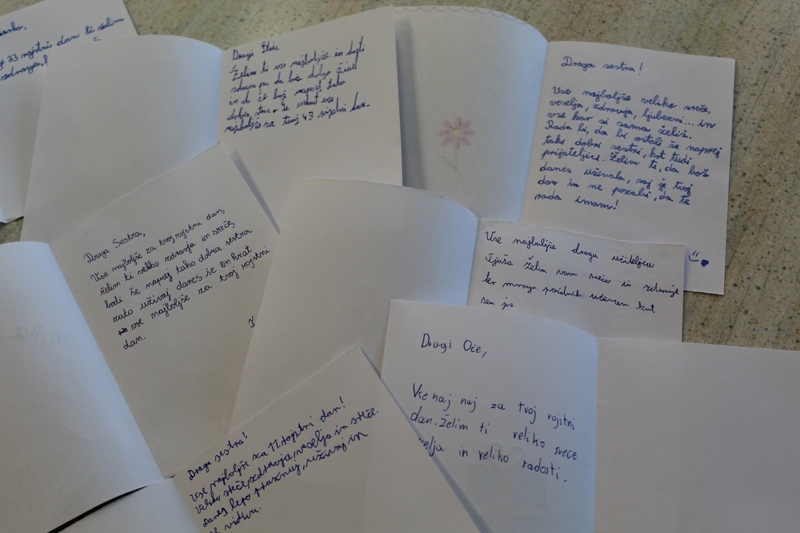 23 rojstni dan ti želim
Dragi Stric
Želim ti vse najboljše in
vse
najboljše za tvoj 43 rojstni dan.
Draga sestra!
Vse najboljše veliko sreče,
veselja, zdravja, ljubezni... in
vse kar si sama želiš.
Rada bi, da bi ostali še naprej
tako dobri sestri, kot tudi
prijateljici. Želim ti, da boš
danes uživala, saj je tvoj
dan in ne pozabi, da te
rada imam!
Draga Sestra,
Vse najboljše za tvoj rojstni dan,
želim ti veliko zdravja in sreče,
bodi še naprej tako dobra sestra
zato uživaj danes še en krat
vse najboljše za tvoj rojstni
dan.
Vse najboljše draga učiteljica
Tjaša želim vam sreče in zdravje
ter mnogo pridnih učencev kot
sem jz
Dragi Oče,
Vse naj naj za tvoj rojstni
dan. želim ti veliko sreče
veselja in veliko radosti.
Draga sestra!
Vse najboljše za 11 rojstni dan!
Veliko sreče, zdravja, veselja in
Danes lepo praznuj, uživaj in